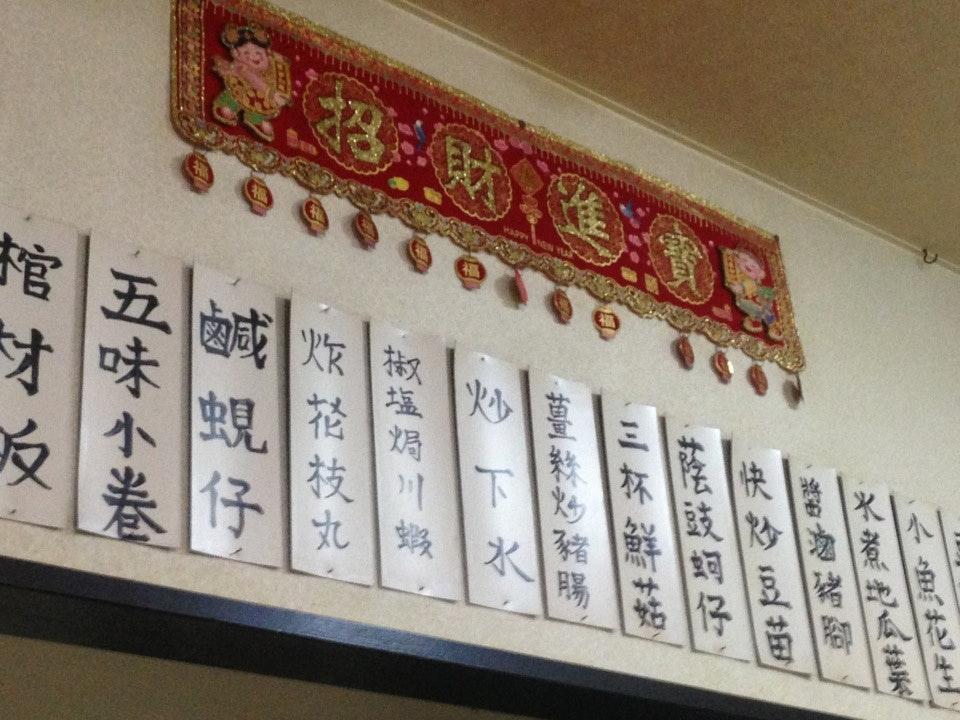 招財進寶
HAPPY NEW YEAR
福
福
福
福
福
福
棺材板
五味小卷
鹹蜆仔
炸花枝丸
椒塩焗川蝦
炒下水
薑絲炒豬腸
三杯鮮菇
蔭豉蚵仔
快炒豆苗
醬滷豬腳
水煮地瓜葉
小魚花生